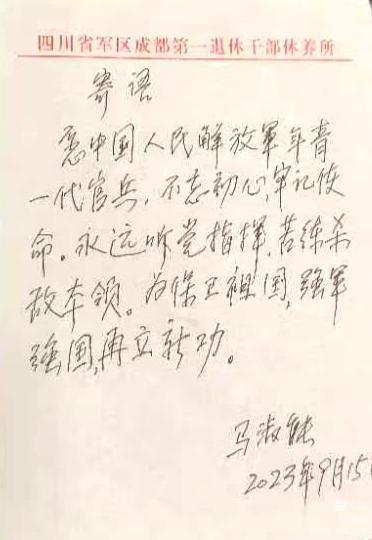 四川省军区成都第一退休干部休养所
寄语
愿中国人民解放軍年青
一代官兵，不忘初心，牢记使
命。永远听党指挥，苦练杀
敌本领。为保卫祖国，强军
强国，再立新功。
马淑能
2023年9月15